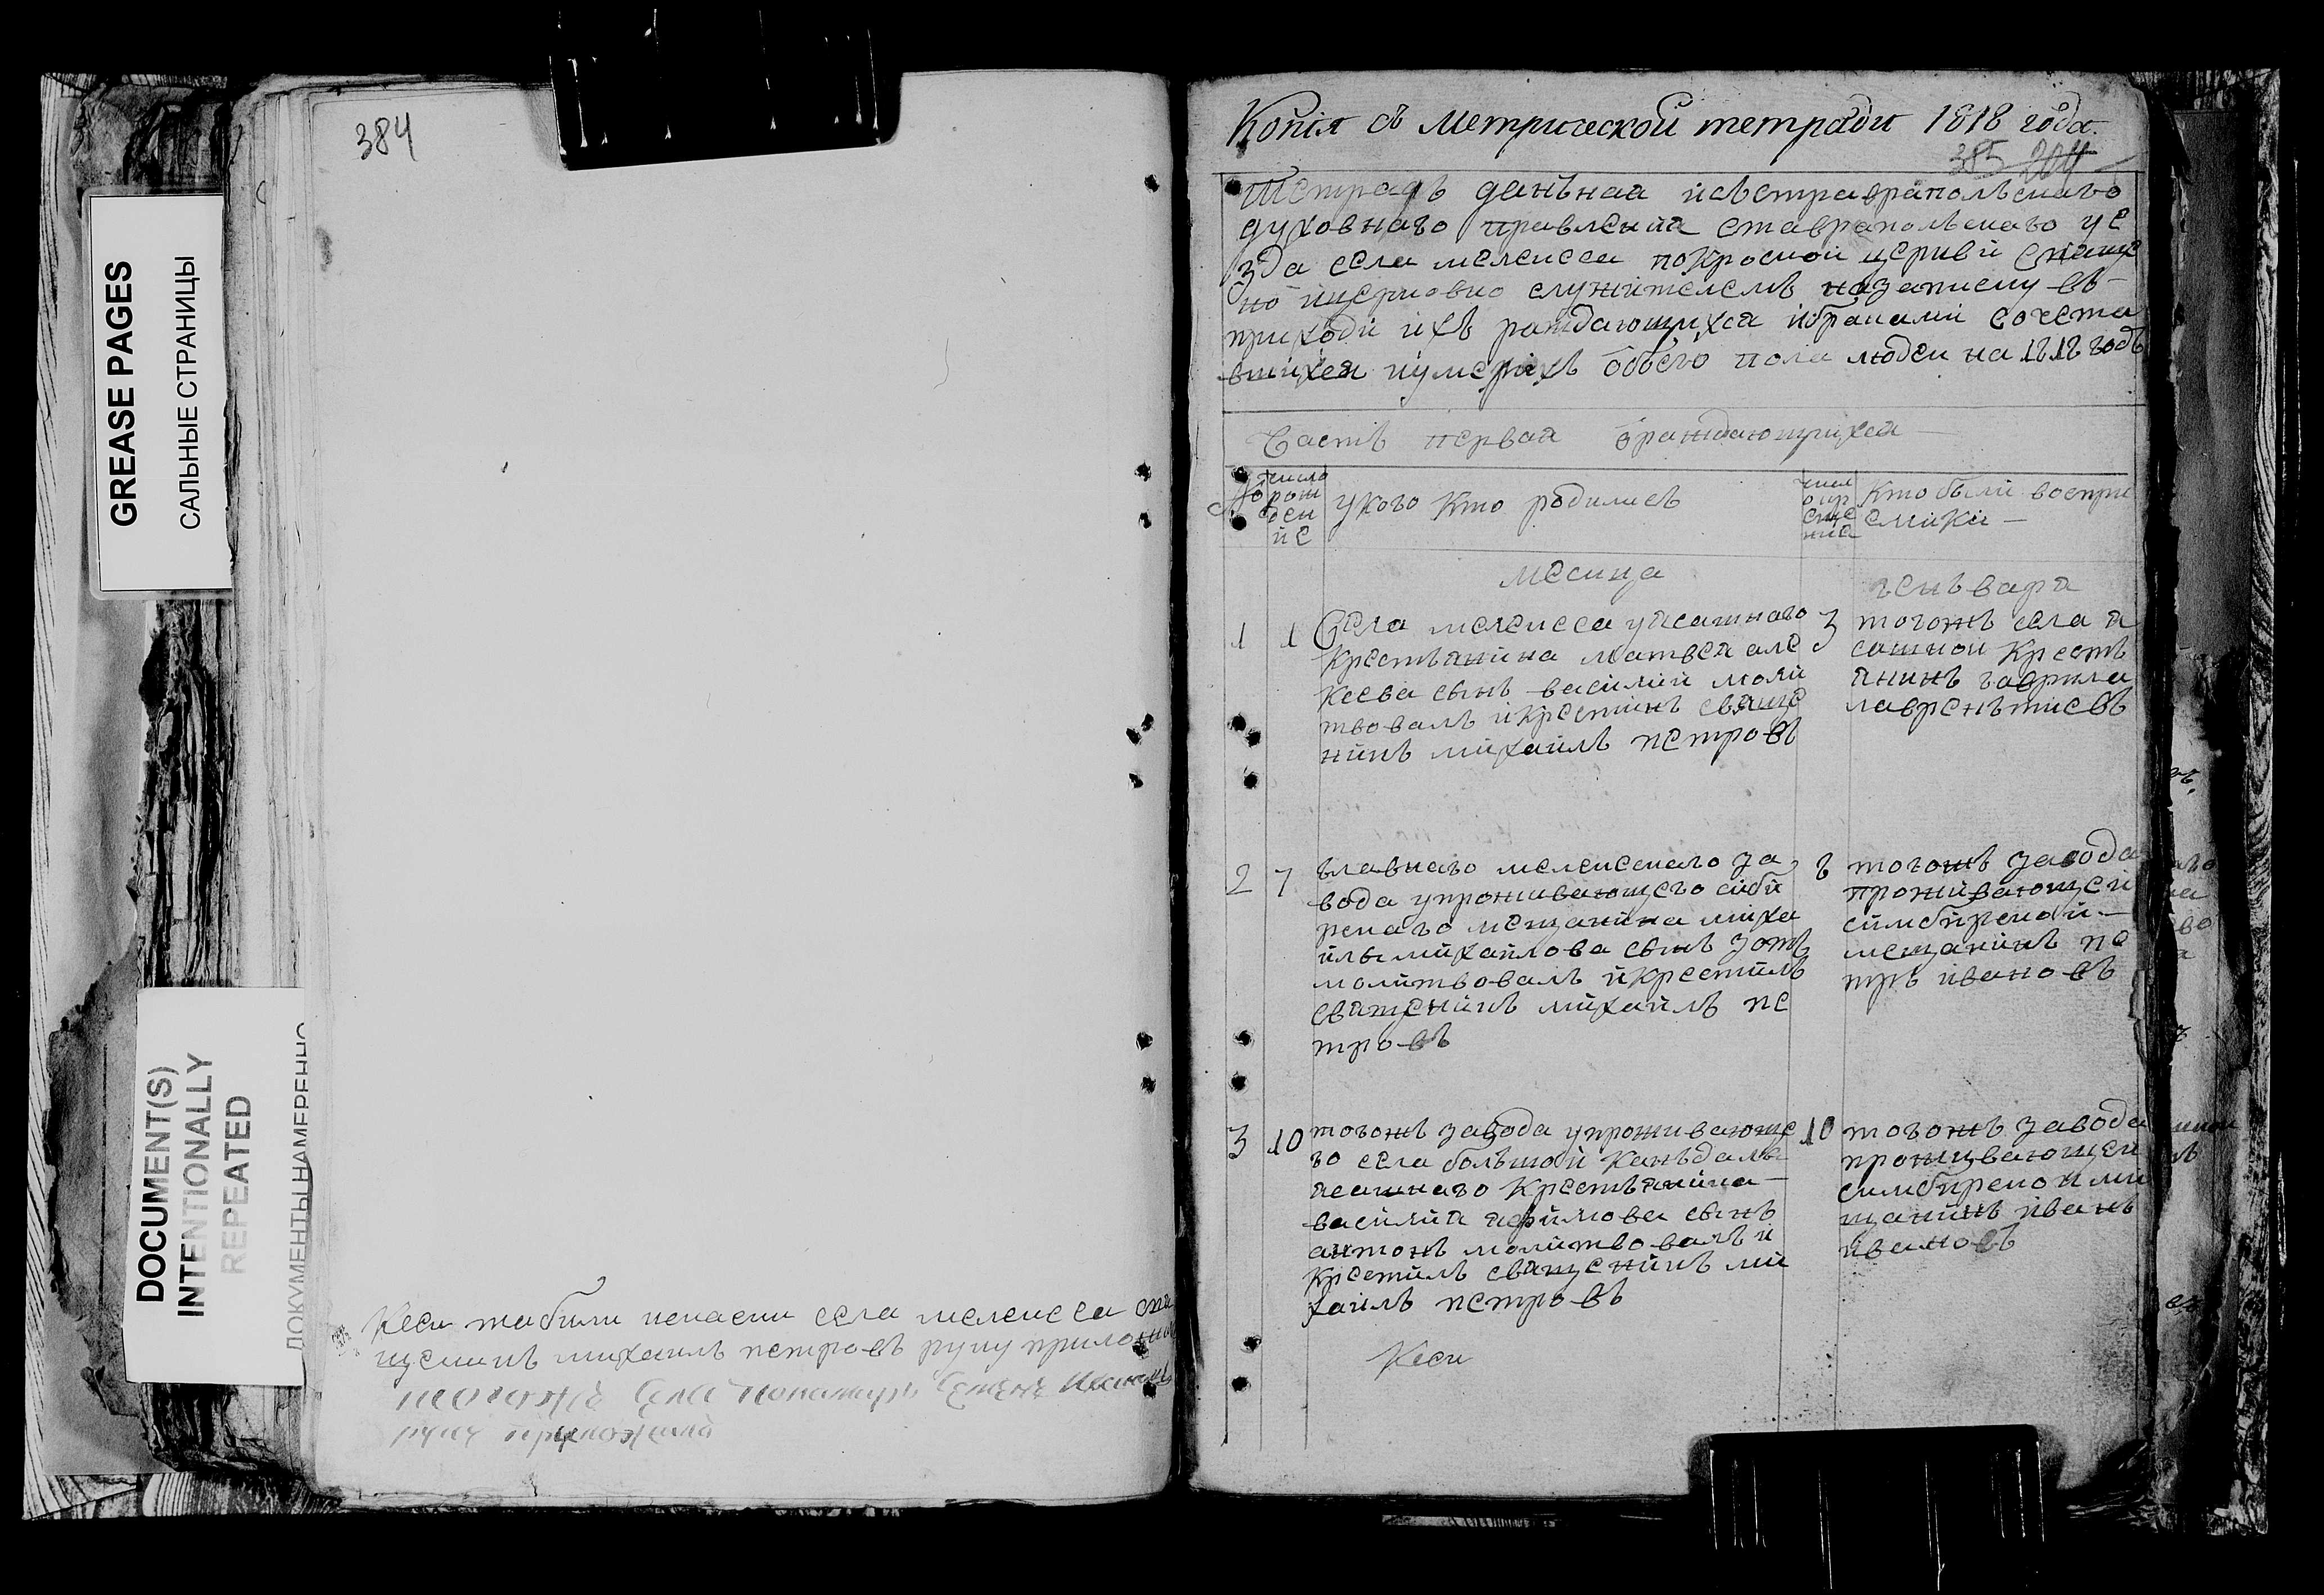 384
GREASE PAGES
САЛЬНЫЕ СТРАНИЦЫ
DOCUMENT(S)
INTENTIONALLY
REPEATED
ДОКУМЕНТЫ НАМЕРЕННО
села мелекеса
михаилъ петровъ руку
тогожъ села Пономарь
руку приложилъ
Копія съ метрической тетради 1818 года.
385 204
Тетрадь данъная
духовнаго правления ставрапольскаго уе
зда села мелекеса покроской церкви свяще
но ицерковно служителемъ назаписку въ
приходи ихъ раждающихся ибраками сочета
вшихся иумерихъ обоего пола людеи на 1818 годъ
Часть первая ораждающихся
число
рож
ден
ие
укого кто родились
числ
о кр
еще
ния
Кто были воспри
емики
месица
генъвара
1 1 Села мелекеса уясашнаго
крестьянина матвея але
кеева сынъ василии моли
твовалъ икрестилъ свяще
никъ михаилъ петровъ
3 тогожъ села я
сашнои крестъ
янинъ гаврила
лавренътиевъ
2 7 главнаго мелекескаго за
вода упроживающего сиби
рскаго мещанина миха
илы михаилова сынъ зотъ
молитвовалъ икрестилъ
священикъ михаилъ пе
тровъ
8 тогожъ завода
проживающеи
симбирской
мещанинъ пе
тръ ивановъ
3 10 тогожъ завода упроживающе
го села большой канъдалы
ясашнаго крестьянина
василия
антонъ молитвовалъ и
крестилъ священикъ ми
хаилъ петровъ
10 тогожъ завода
проживающеи
симбирскои ми
щанинъ иванъ
ивановъ